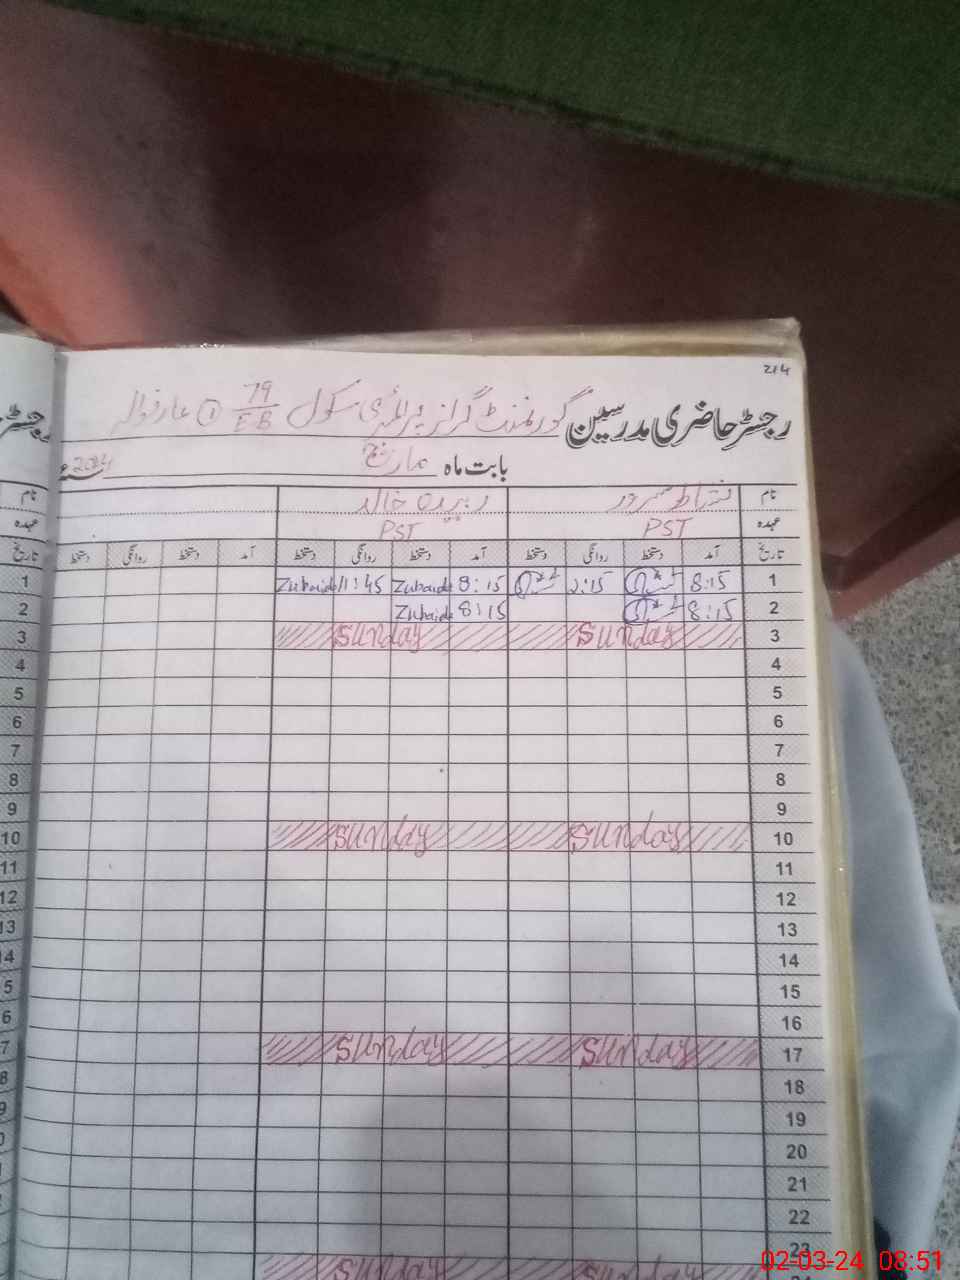 214
رجسٹر حاضری مدرسین گورنمنٹ گرلز پرائمری سکول 79/E-B ① عارفوالہ
بابت ماہ مارچ سنہ 2024ء
نام زبیدہ خالد
عہدہ PST PST
تاریخ آمد دستخط روانگی دستخط آمد دستخط روانگی دستخط آمد دستخط روانگی دستخط
1 8:15 2:15 8:15 Zubaida 11:45 Zubaida
2 8:15 8:15 Zubaida
3 Sunday Sunday
4
5
6
7
8
9
10 Sunday Sunday
11
12
13
14
15
16
17 Sunday Sunday
18
19
20
21
22
23
Sunday Sunday
رجسٹر
نام
عہدہ
تاریخ
1
2
3
4
5
6
7
8
9
10
11
12
13
02-03-24 08:51